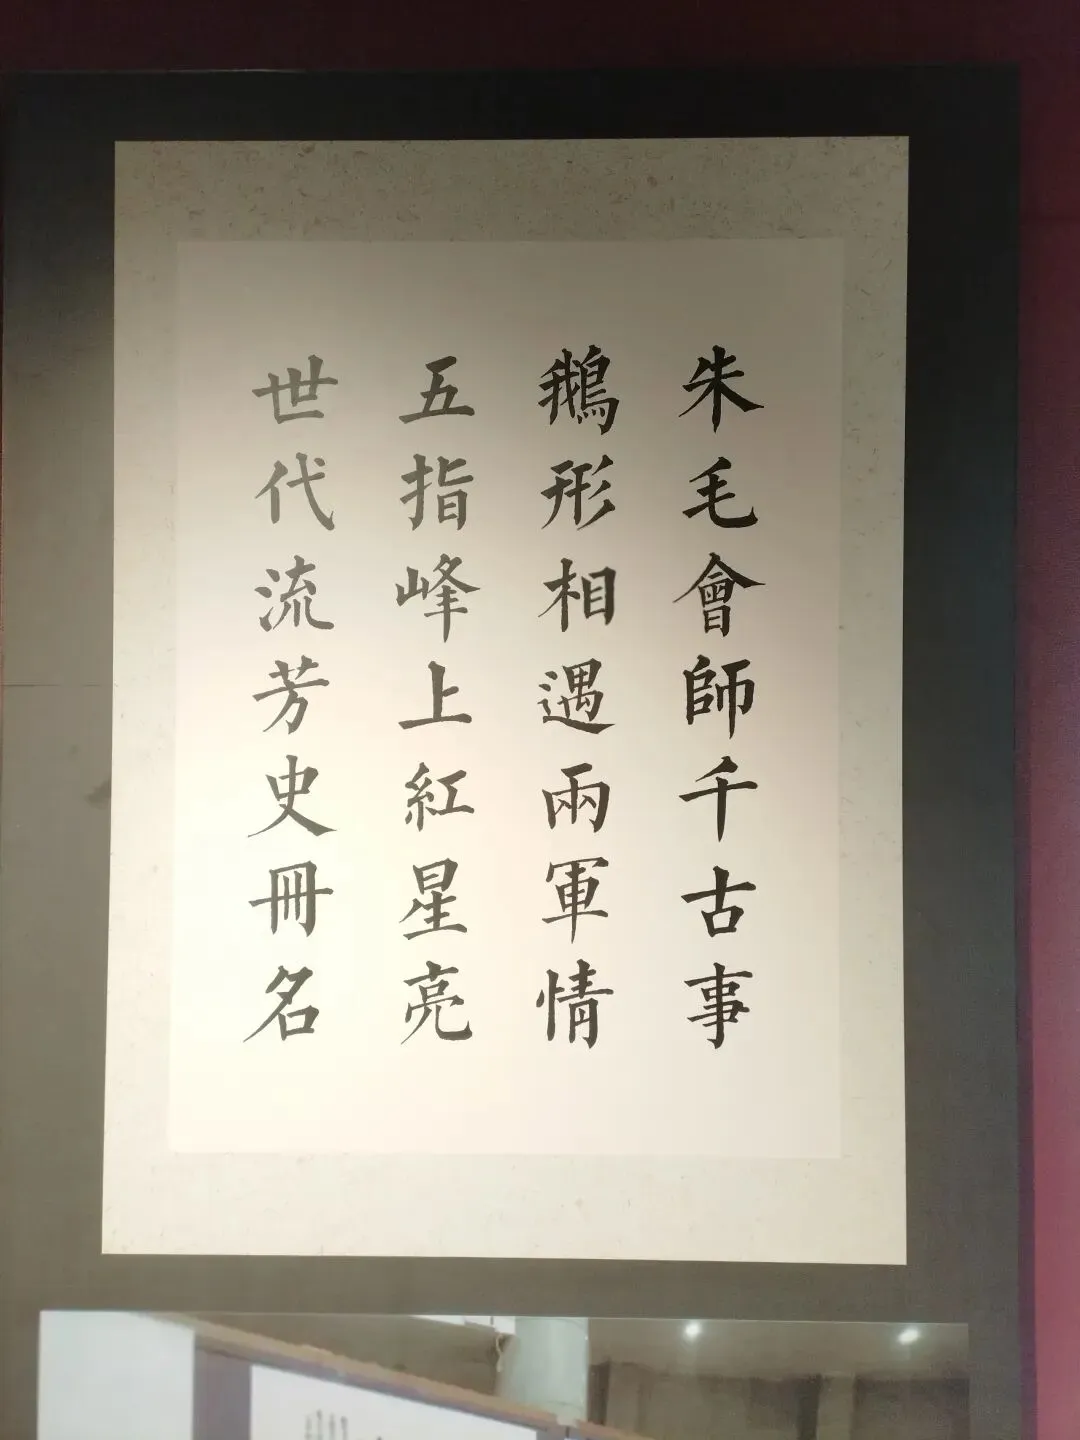 朱毛會師千古事
鵝形相遇兩軍情
五指峰上紅星亮
世代流芳史冊名